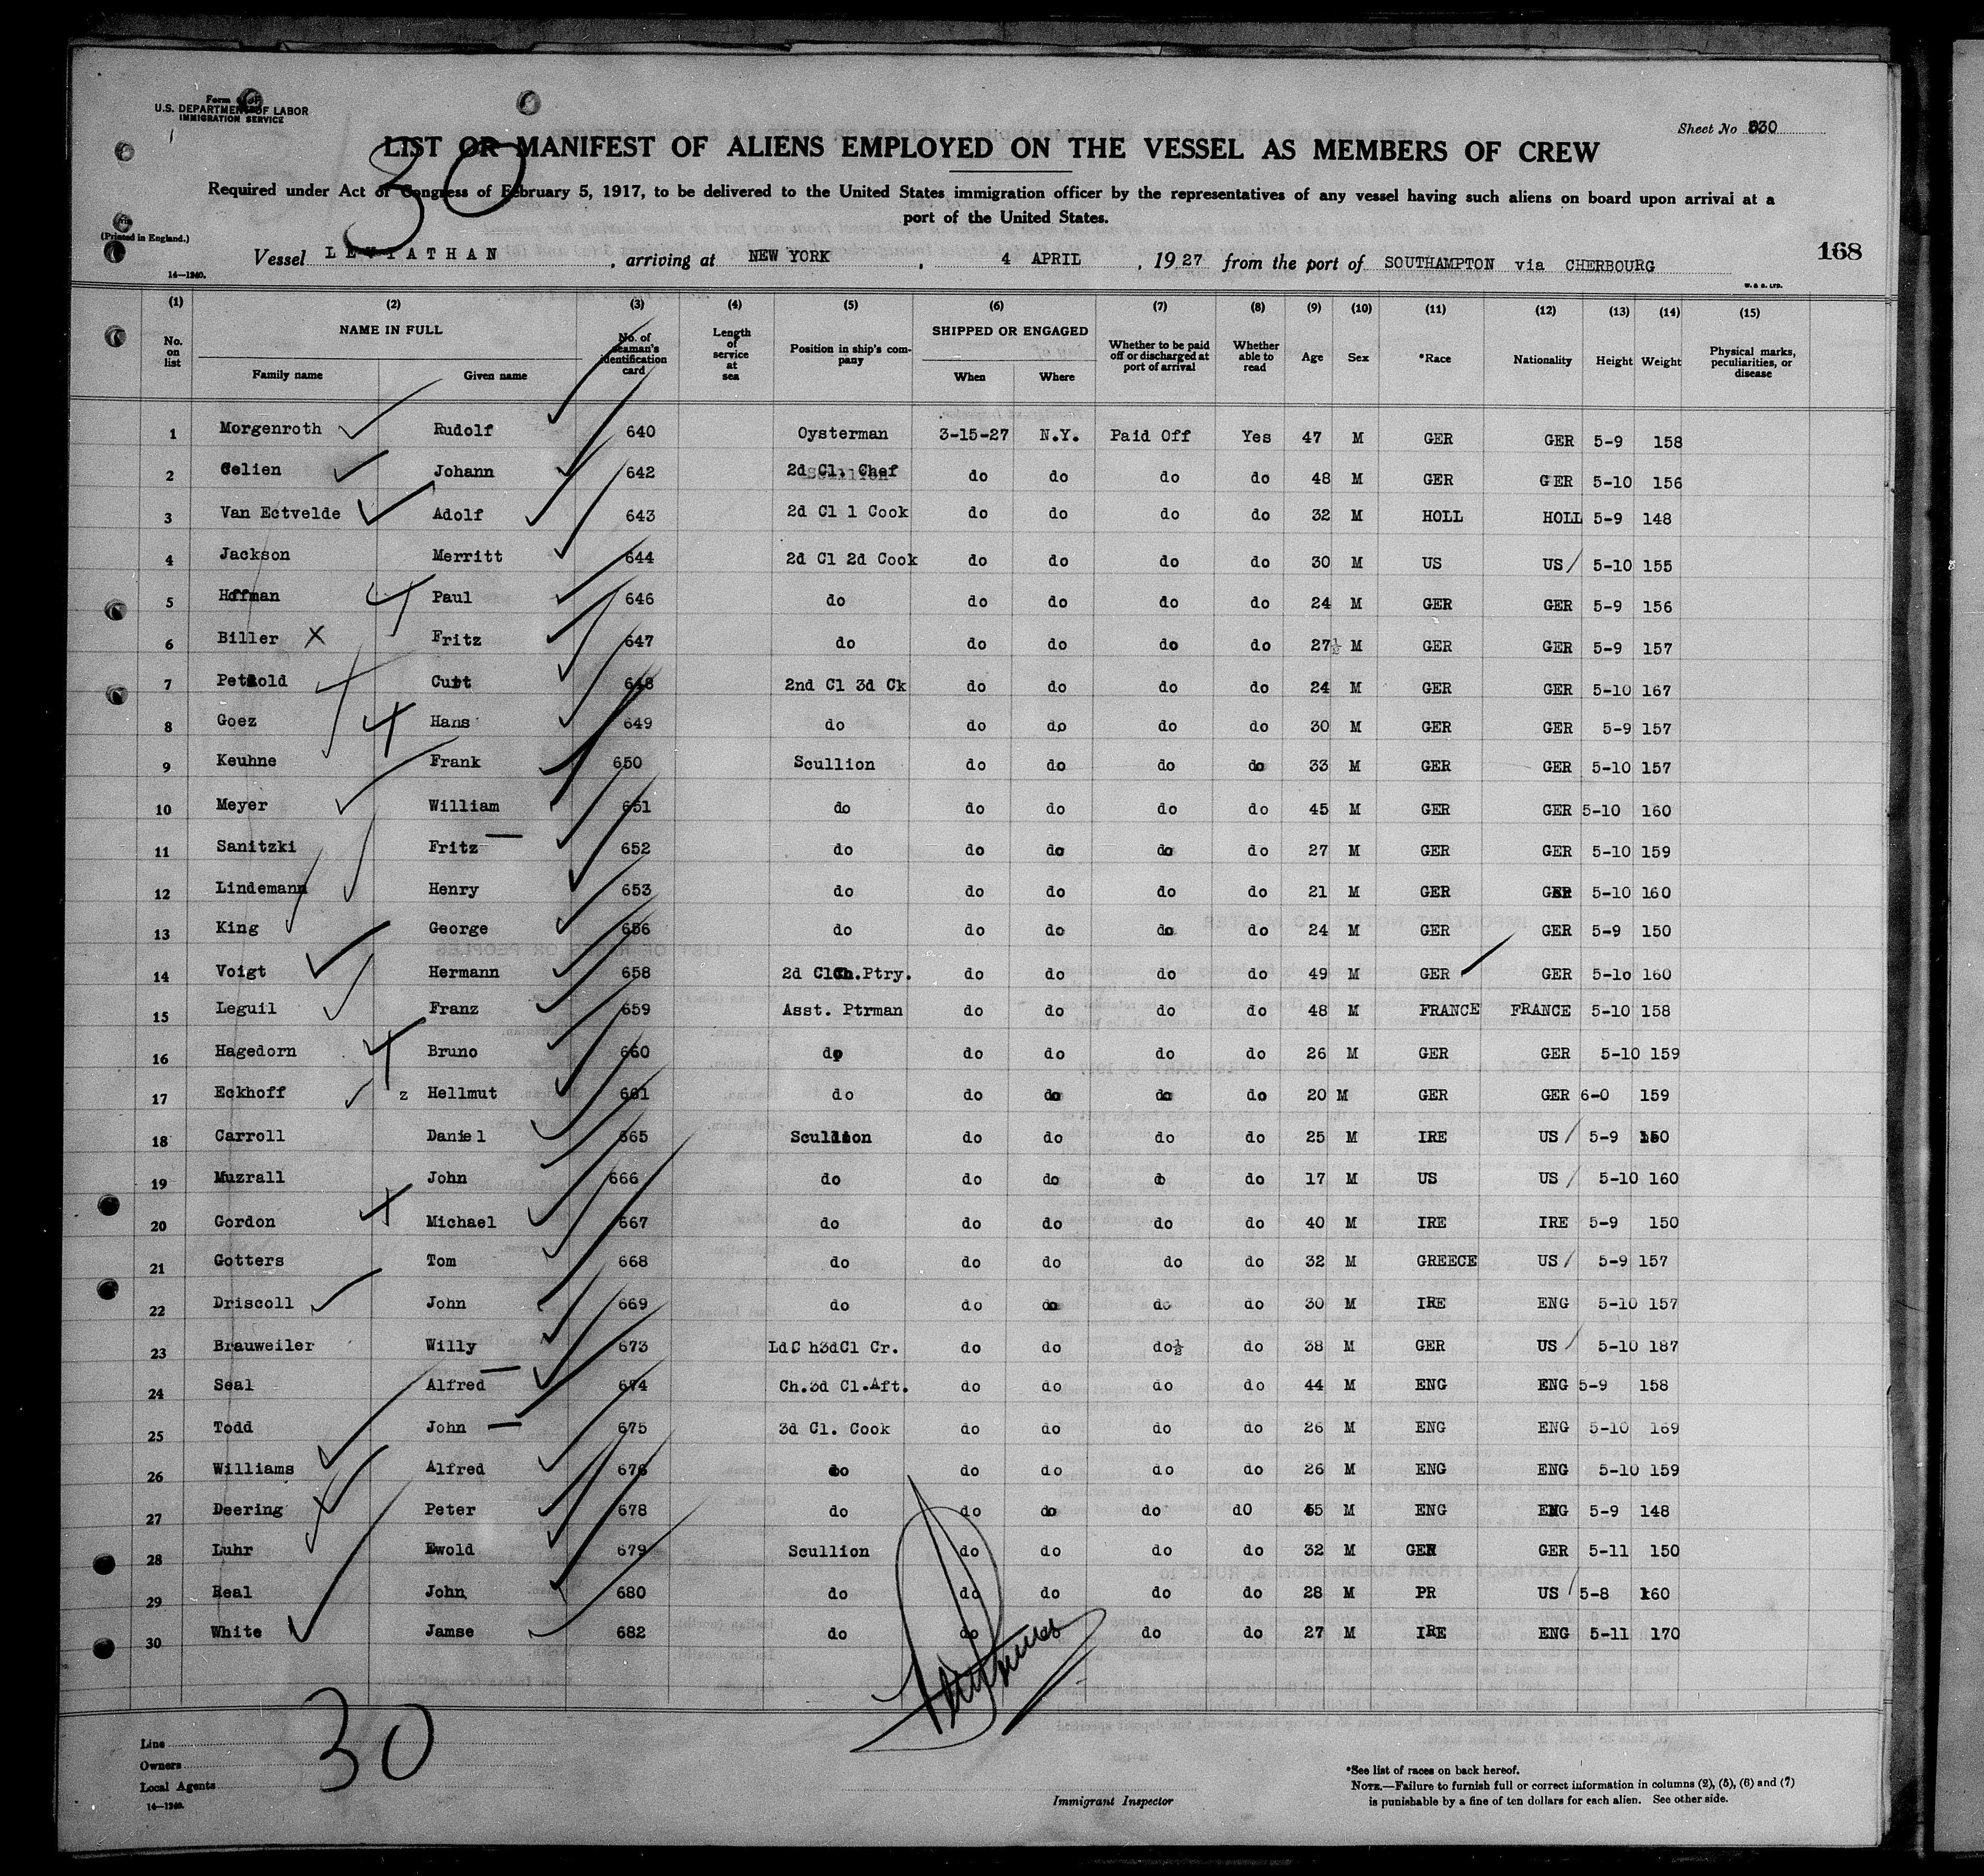 Form
U.S. DEPARTMENT OF LABOR
IMMIGRATION SERVICE
Sheet No 30
30
LIST OR MANIFEST OF ALIENS EMPLOYED ON THE VESSEL AS MEMBERS OF CREW
Required under Act of Congress of February 5, 1917, to be delivered to the United States immigration officer by the representatives of any vessel having such aliens on board upon arrival at a
port of the United States.
(Printed in England.)
168
Vessel LEVIATHAN, arriving at NEW YORK, 4 APRIL, 1927 from the port of SOUTHAMPTON via CHERBOURG
14—1240.
W. & S. LTD.
(1) (2) (3) (4) (5) (6) (7) (8) (9) (10) (11) (12) (13) (14) (15)
No. on list NAME IN FULL Family name Given name No. of seaman's identification card Length of service at sea Position in ship's company SHIPPED OR ENGAGED When Where Whether to be paid off or discharged at port of arrival Whether able to read Age Sex *Race Nationality Height Weight Physical marks, peculiarities, or disease
1 Morgenroth Rudolf 640 Oysterman 3-15-27 N.Y. Paid Off Yes 47 M GER GER 5-9 158
2 Celien Johann 642 2d Cl. Chef do do do do 48 M GER GER 5-10 156
3 Van Ectvelde Adolf 643 2d Cl 1 Cook do do do do 32 M HOLL HOLL 5-9 148
4 Jackson Merritt 644 2d Cl 2d Cook do do do do 30 M US US/ 5-10 155
5 Hffman Paul 646 do do do do do 24 M GER GER 5-9 156
6 Biller X Fritz 647 do do do do do 27½ M GER GER 5-9 157
7 Petzold Curt 648 2nd Cl 3d Ck do do do do 24 M GER GER 5-10 167
8 Goez Hans 649 do do do do do 30 M GER GER 5-9 157
9 Keuhne Frank 650 Scullion do do do do 33 M GER GER 5-10 157
10 Meyer William 651 do do do do do 45 M GER GER 5-10 160
11 Sanitzki Fritz 652 do do do do do 27 M GER GER 5-10 159
12 Lindemann Henry 653 do do do do do 21 M GER GER 5-10 160
13 King George 656 do do do do do 24 M GER GER 5-9 150
14 Voigt Hermann 658 2d Cl Ch.Ptry. do do do do 49 M GER GER 5-10 160
15 Leguil Franz 659 Asst. Ptrman do do do do 48 M FRANCE FRANCE 5-10 158
16 Hagedorn Bruno 660 do do do do do 26 M GER GER 5-10 159
17 Eckhoff z Hellmut 661 do do do do do 20 M GER GER 6-0 159
18 Carroll Daniel 665 Scullion do do do do 25 M IRE US/ 5-9 150
19 Muzrall John 666 do do do d do 17 M US US/ 5-10 160
20 Gordon Michael 667 do do do do do 40 M IRE IRE 5-9 150
21 Gotters Tom 668 do do do do do 32 M GREECE US/ 5-9 157
22 Driscoll John 669 do do do do do 30 M IRE ENG 5-10 157
23 Brauweiler Willy 673 LdC h3dCl Cr. do do do½ do 38 M GER US/ 5-10 187
24 Seal Alfred 674 Ch.3d Cl.Aft. do do do do 44 M ENG ENG 5-9 158
25 Todd John 675 3d Cl. Cook do do do do 26 M ENG ENG 5-10 169
26 Williams Alfred 676 do do do do do 26 M ENG ENG 5-10 159
27 Deering Peter 678 do do do do dO 45 M ENG ENG 5-9 148
28 Luhr Ewold 679 Scullion do do do do 32 M GER GER 5-11 150
29 Real John 680 do do do do do 28 M PR US/ 5-8 160
30 White Jamse 682 do do do do do 27 M IRE ENG 5-11 170
30
Line
Owners
Local Agents
14—1240.
Immigrant Inspector
*See list of races on back hereof.
NOTE.—Failure to furnish full or correct information in columns (2), (5), (6) and (7)
is punishable by a fine of ten dollars for each alien. See other side.